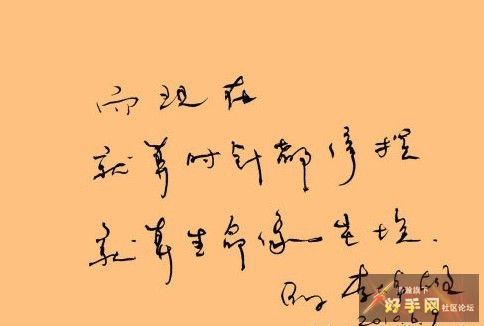 而现在
就算时针都停摆
就算生命像尘埃.
2010.6.9
好手网
社区论坛